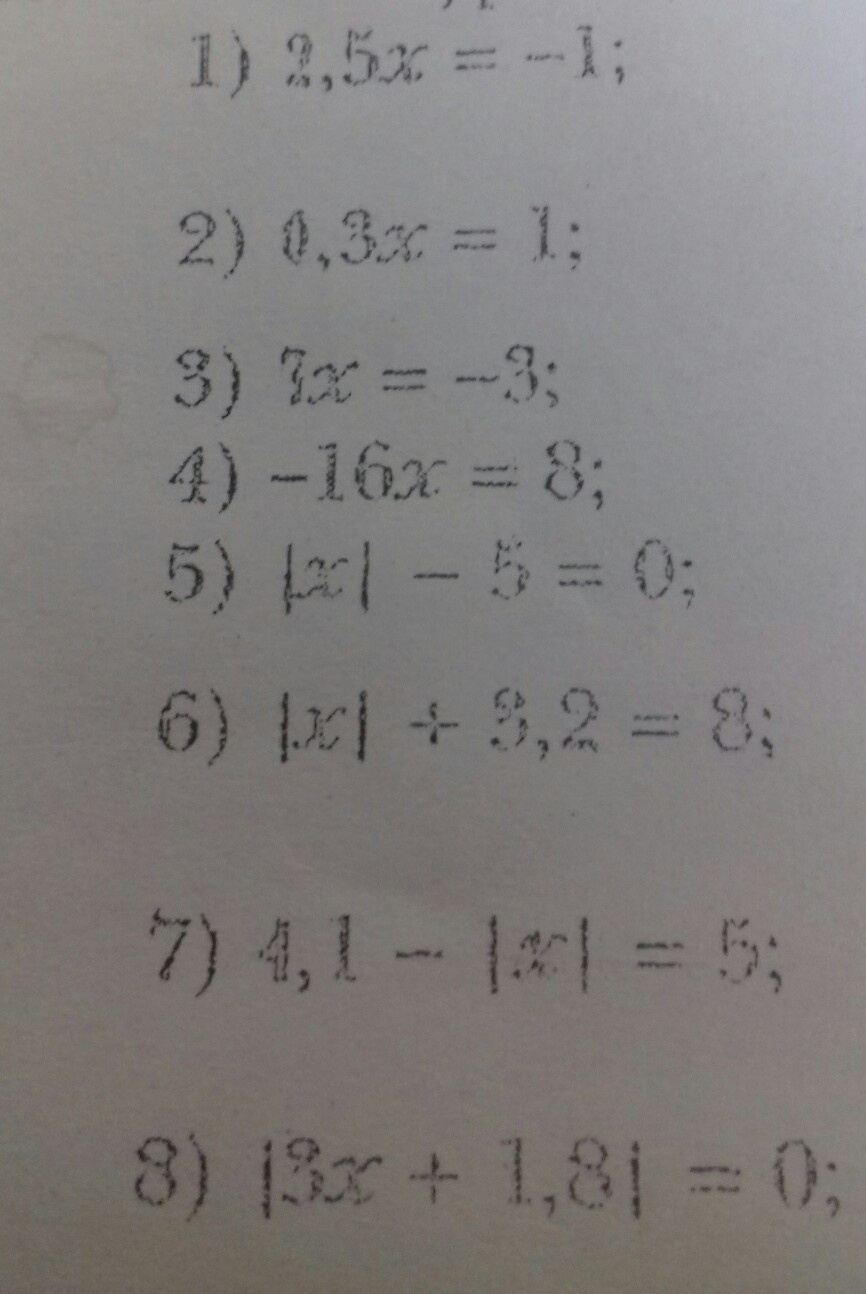 1) 2,5x = -1;
2) 0,3x = 1;
3) 7x = -3;
4) -16x = 8;
5) |x| - 5 = 0;
6) |x| + 3,2 = 8;
7) 4,1 - |x| = 5;
8) |3x + 1,8| = 0;